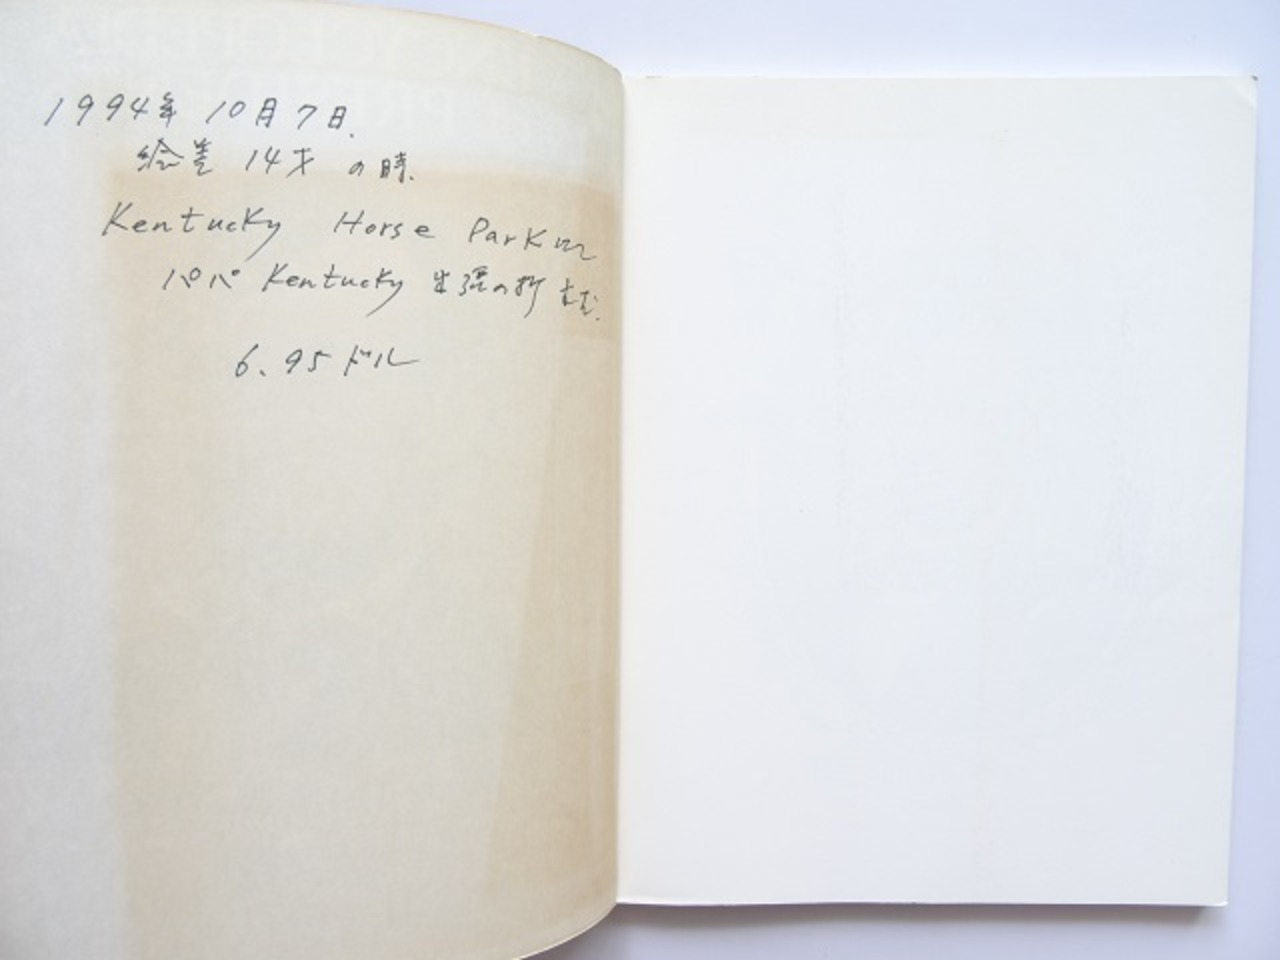 1994年 10月7日.
絵美 14才 の時.
Kentucky Horse Parkにて
パパ Kentucky 出張の折
6.95ドル